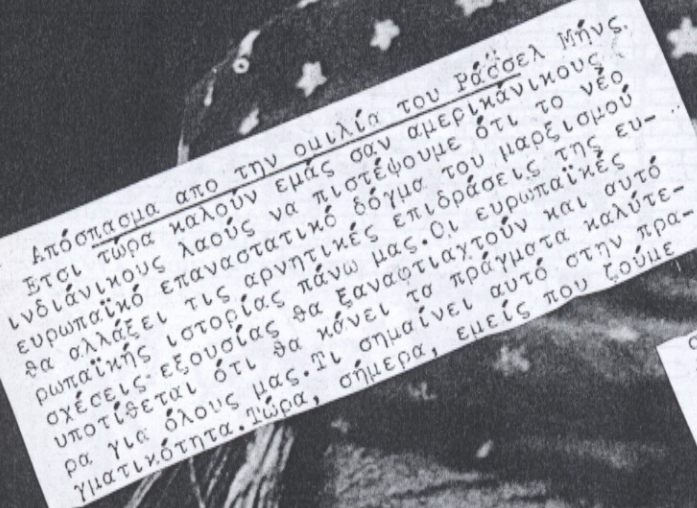 Απόσπασμα απο την ομιλία του Ράσσελ Μήνς.
Ετσι τώρα καλούν εμάς σαν αμερικάνικους
ινδιάνικους λαούς να πιστέψουμε ότι το νέο
ευρωπαϊκό επαναστατικό δόγμα του μαρξισμού
θα αλλάξει τις αρνητικές επιδράσεις της ευ-
ρωπαϊκής ιστορίας πάνω μας.Οι ευρωπαϊκές
σχέσεις εξουσίας θα ξαναφτιαχτούν και αυτό
υποτίθεται ότι θα κάνει τα πράγματα καλύτε-
ρα για όλους μας.Τι σημαίνει αυτό στην πρα-
γματικότητα.Τώρα, σήμερα, εμείς που ζούμε